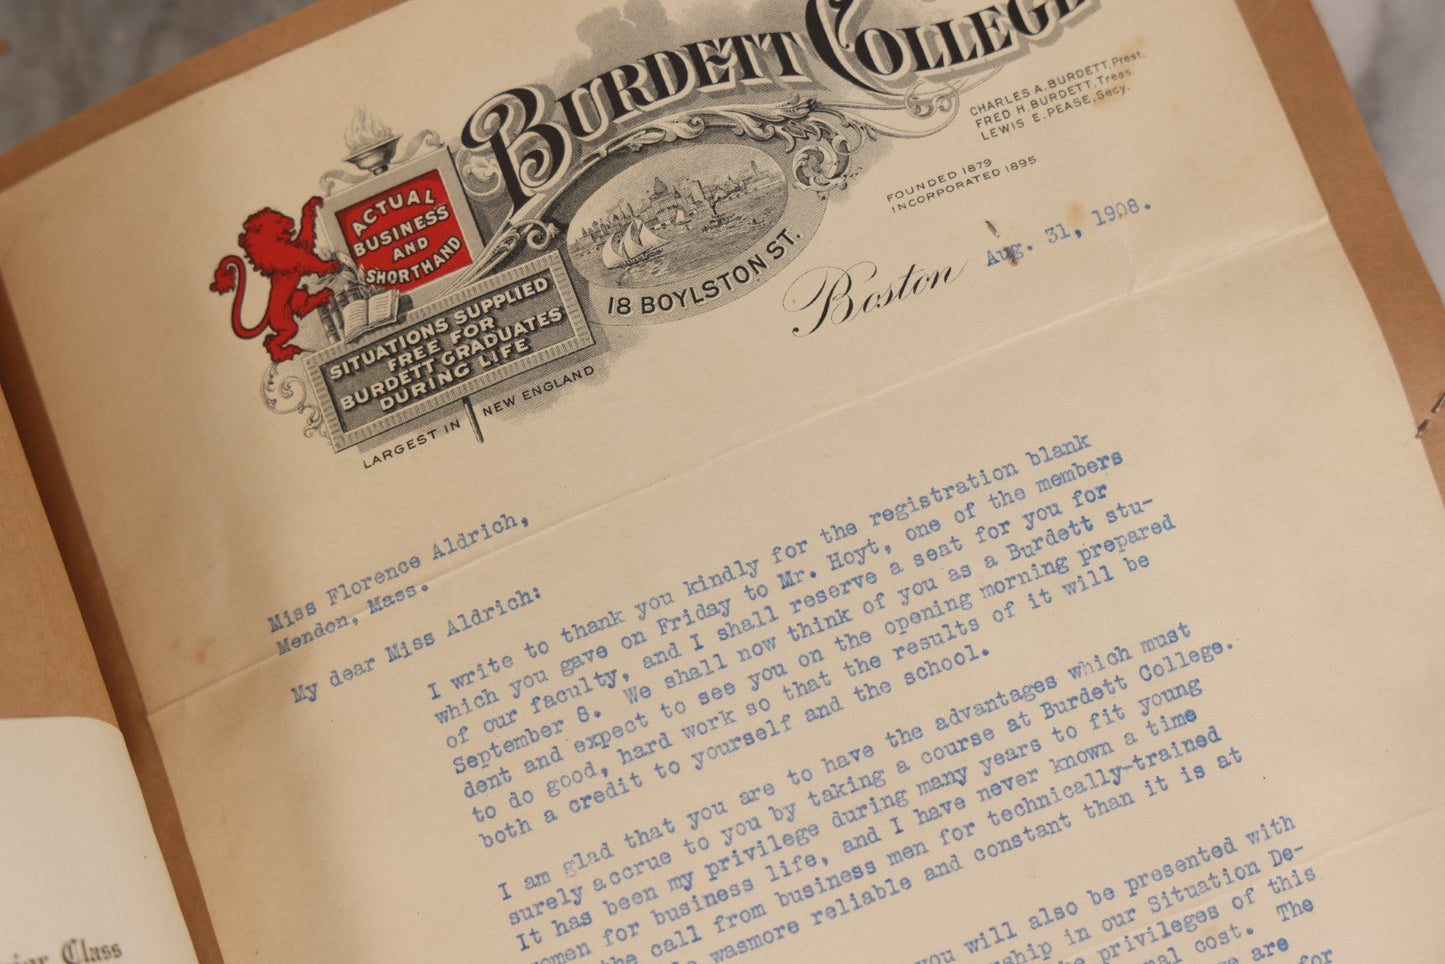 BURDETT COLLEGE
CHARLES A. BURDETT, Prest.
FRED H. BURDETT, Treas.
LEWIS E. PEASE, Secy.
FOUNDED 1879
INCORPORATED 1895
ACTUAL
BUSINESS
AND
SHORTHAND
SITUATIONS SUPPLIED
FREE FOR
BURDETT GRADUATES
DURING LIFE
18 BOYLSTON ST.
LARGEST IN NEW ENGLAND
Boston Aug. 31, 1908.
Miss Florence Aldrich,
Mendon, Mass.
My dear Miss Aldrich:
I write to thank you kindly for the registration blank
which you gave on Friday to Mr. Hoyt, one of the members
of our faculty, and I shall reserve a seat for you for
September 8. We shall now think of you as a Burdett stu-
dent and expect to see you on the opening morning prepared
to do good, hard work so that the results of it will be
both a credit to yourself and the school.
I am glad that you are to have the advantages which must
surely accrue to you by taking a course at Burdett College.
It has been my privilege during many years to fit young
women for business life, and I have never known a time
the call from business men for technically-trained
wasmore reliable and constant than it is at
you will also be presented with
in our Situation De-
privileges of this
cost. The
are
for
Class